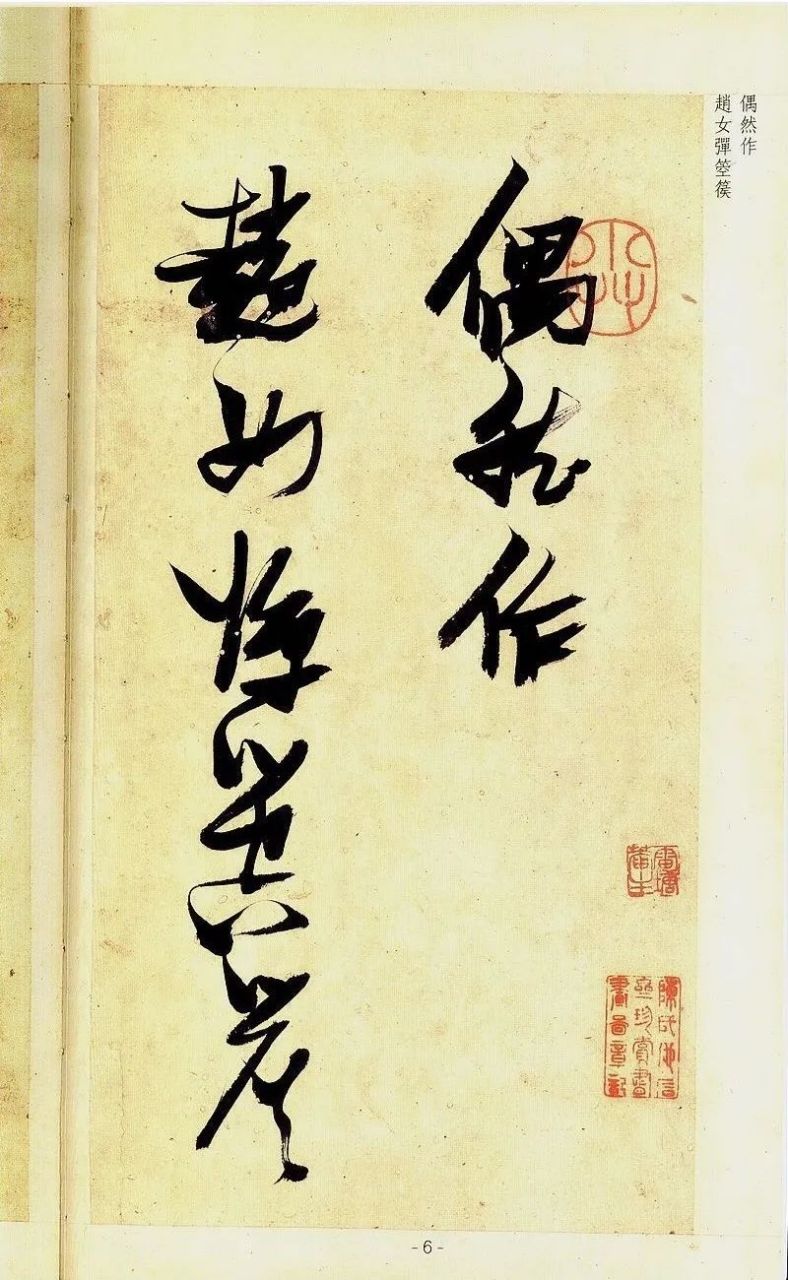 偶然作
趙女彈箜篌
偶然作
趙女彈箜篌
-6-